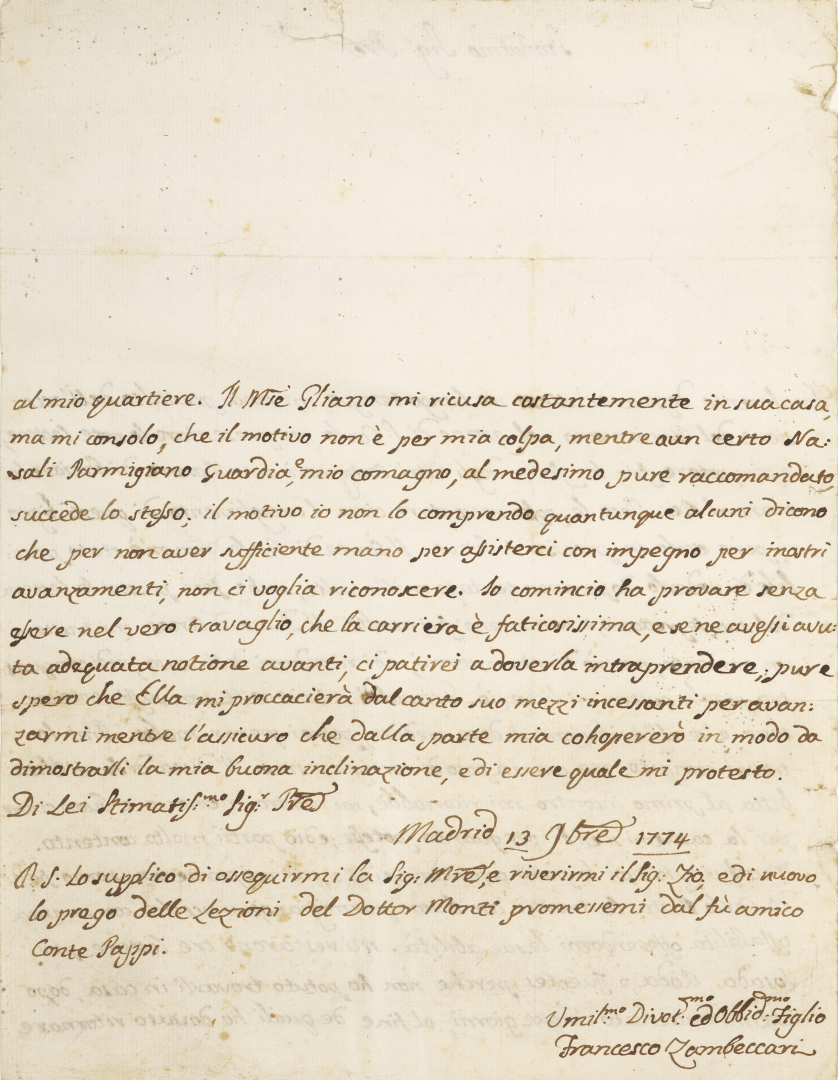 al mio quartiere. Il Mse Gliano mi ricusa costantemente in sua casa,
ma mi consolo, che il motivo non è per mia colpa, mentre a un certo Na:
sali Parmigiano Guardia, e mio comagno, al medesimo pure raccomandato,
succede lo stesso; il motivo io non lo comprendo quantunque alcuni dicono
che per non aver sufficiente mano per assisterci con impegno per i nostri
avanzamenti, non ci voglia riconoscere. Io comincio ha provare senza
essere nel vero travaglio, che la carriera è faticosissima, e se ne avessi avu:
ta adequata notione avanti, ci patirei a doverla intraprendere; pure
spero che Ella mi proccacierà dal canto suo mezzi incessanti per avan:
zarmi mentre l'assicuro che dalla parte mia cohopererò in modo da
dimostrarli la mia buona inclinazione, e di essere quale mi protesto.
Di Lei Stimatis:mo Sig:r Pre
Madrid 13 9bre 1774
P. S. Lo supplico di ossequirmi la Sig: Mre, e riverirmi il Sig: Zio, e di nuovo
lo prego delle Lezioni del Dottor Monti promessemi dal fù amico
Conte Pappi.
Umil:mo Divot:mo ed Obbid:mo Figlio
Francesco Zambeccari